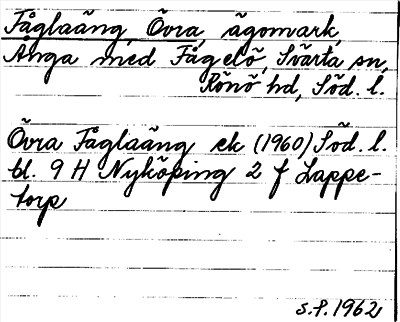 Fåglaäng Övra ägomark
Ånga med Fågelö, Svärta sn,
Rönö hd, Söd. l.
Övra Fåglaäng ek (1960) Söd. l.
bl. 9 H Nyköping 2 f Lappe-
torp
s.f. 1962